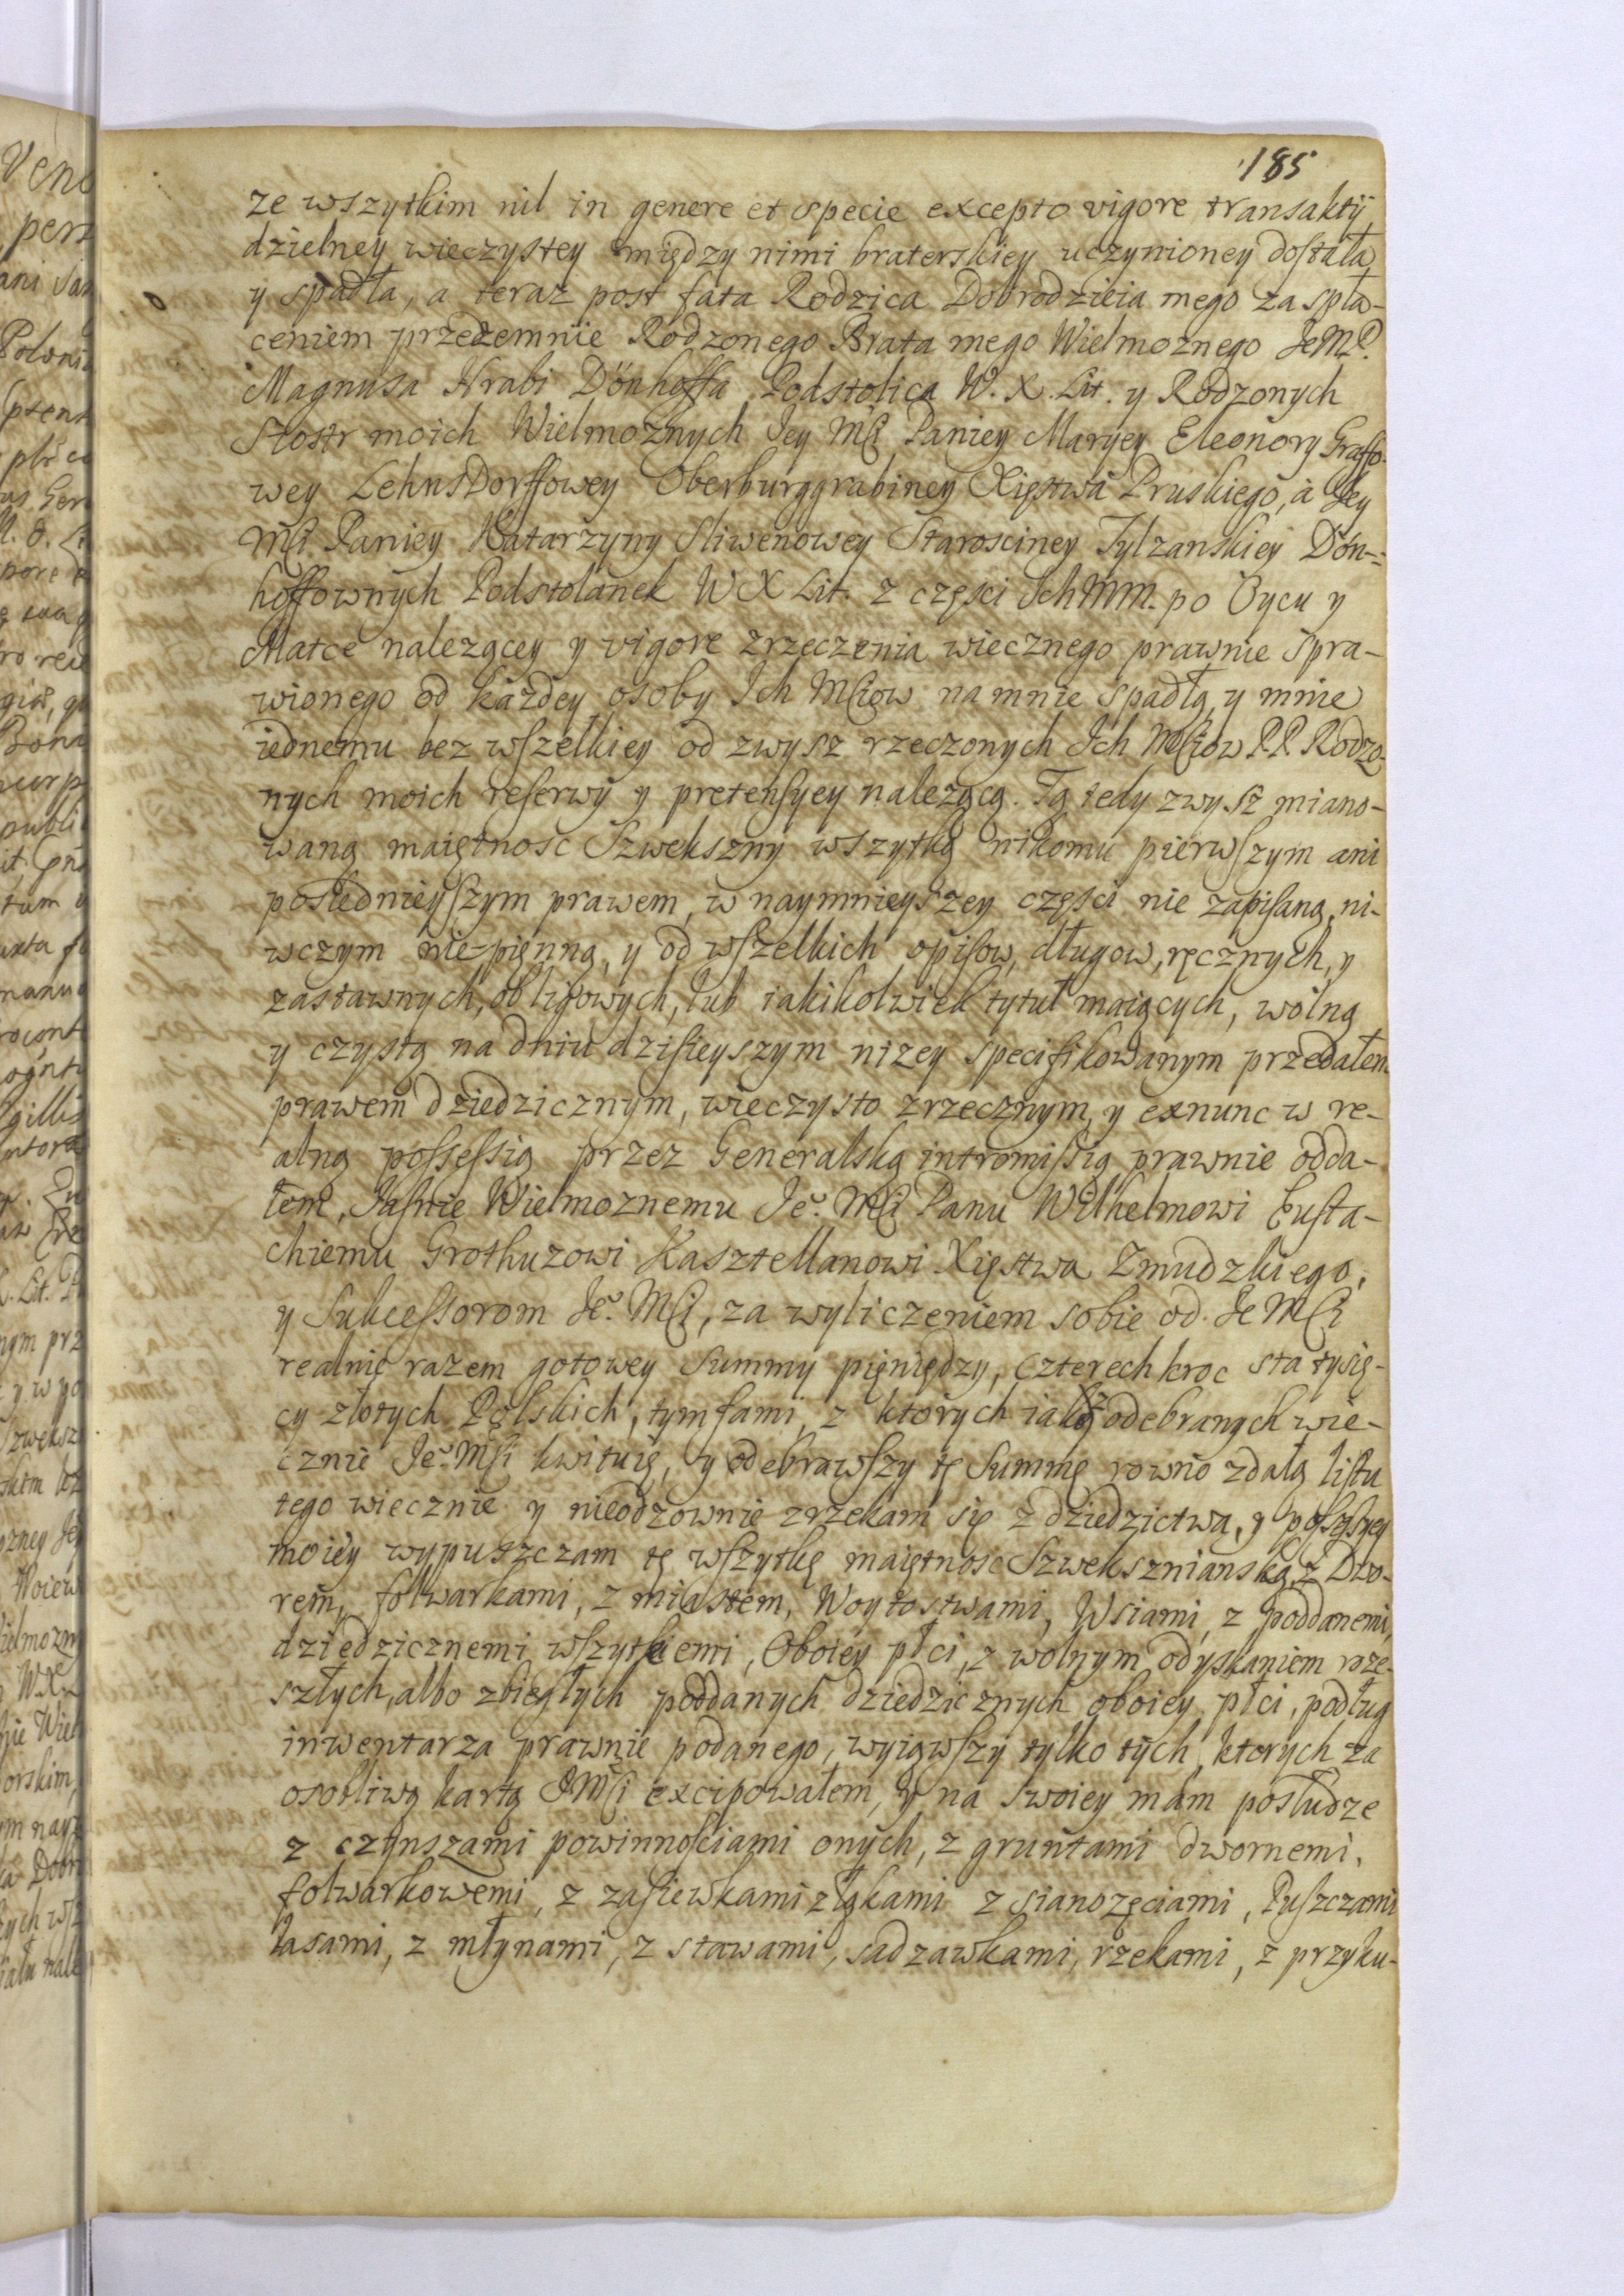 185
ze wszytkim nil in genere et specie excepto vigore transaktÿ
dzielney wieczystey między nimi braterskiey uczynioney dostała
y spadła, a teraz post fata Rodzica Dobrodzieia mego za spła-
ceniem przezemnie Rodzonego Brata mego Wielmoznego JeMP.
Magnusa Hrabi Dönhoffa Podstolica W. X. Lit. y Rodzonych
Siostr moich Wielmoznych Jey Mći Paniey Maryey Eleonory Graffo-
wey LehnsDorffowey Oberburggrabiney Xięstwa Pruskiego, à Jey
Mći Paniey Katarzyny Sliwenowey Starosciney Tylzanskiey Dön-
hoffownych Podstolanek W X Lit. z częsci IchMM. po Oycu y
Matce nalezącey y vigore zrzeczenia wiecznego prawnie spra-
wionego od kazdey osoby Ich Mćiow na mnie spadłą, y mnie
iednemu bez wszelkiey od zwysz rzeczonych Ich Mćiow P.P. Rodzo-
nych moich reserwÿ y pretensyey nalezącą. Tą tedy zwysz miano-
waną maiętnosc Szwekszny wszytką nikomu pierwszym ani
poslednieyszym prawem, w naymnieyszey częsci nie zapisaną, ni-
wczym nie-pienną, y od wszelkich opisow, długow, ręcznych, y
zastawnych, obligowych, lub iakikolwiek tytuł maiących, wolną
y czystą na dniu dzisieyszym nizey specifikowanym przedałem
prawem dziedzicznym, wieczysto zrzecznym, y exnunc w re-
alną possessią przez Generalską intromissią prawnie odda-
łem, Jasnie Wielmoznemu Je. Mći Panu Wilhelmowi Eusta-
chiemu Grothuzowi Kasztellanowi Xięstwa Zmudzkiego,
y Sukcessorom Je. Mći, za wyliczeniem sobie od Je Mći
realnie razem gotowey Summy pięniędzy, czterech kroc sta tysię-
cy złotych Polskich, tymfami, z ktorych iako odebranych wie-
cznie Je. Mći kwituię, y odebrawszy tę Summę rowno zdałą listu
tego wiecznie y nieodzownie zrzekam się z dziedzictwa, y possessyey
moiey wypuszczam tę wszytkę maiętnosc Szweksznianską, z Dwo-
rem, folwarkami, z miastem, Woytostwami, Wsiami, z poddanemi,
dziedzicznemi wszytkiemi, Oboiey płci, z wolnym odyskaniem roze-
szłych, albo zbiegłych poddanych dziedzicznych oboiey płci, podług
inwentarza prawnie podanego, wyiąwszy tylko tych, ktorych za
osobliwą kartą JMći excipowałem, y na swoiey mam posłudze
z czynszami powinnosciami onych, z gruntami dwornemi,
folwarkowemi, z zasiewkami złąkami z sianozęciami, Puszczami
Lasami, z młynami, z stawami, sadzawkami, rzekami, z przyku-